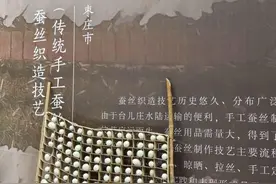 枣庄市
（传统手工蚕
蚕丝织造技艺
蚕丝织造技艺历史悠久、分布广泛
由于台儿庄水陆运输的便利，手工蚕丝制
蚕丝用品需量大，得到了
蚕丝制作技艺主要流程
晾晒、拉丝、手工